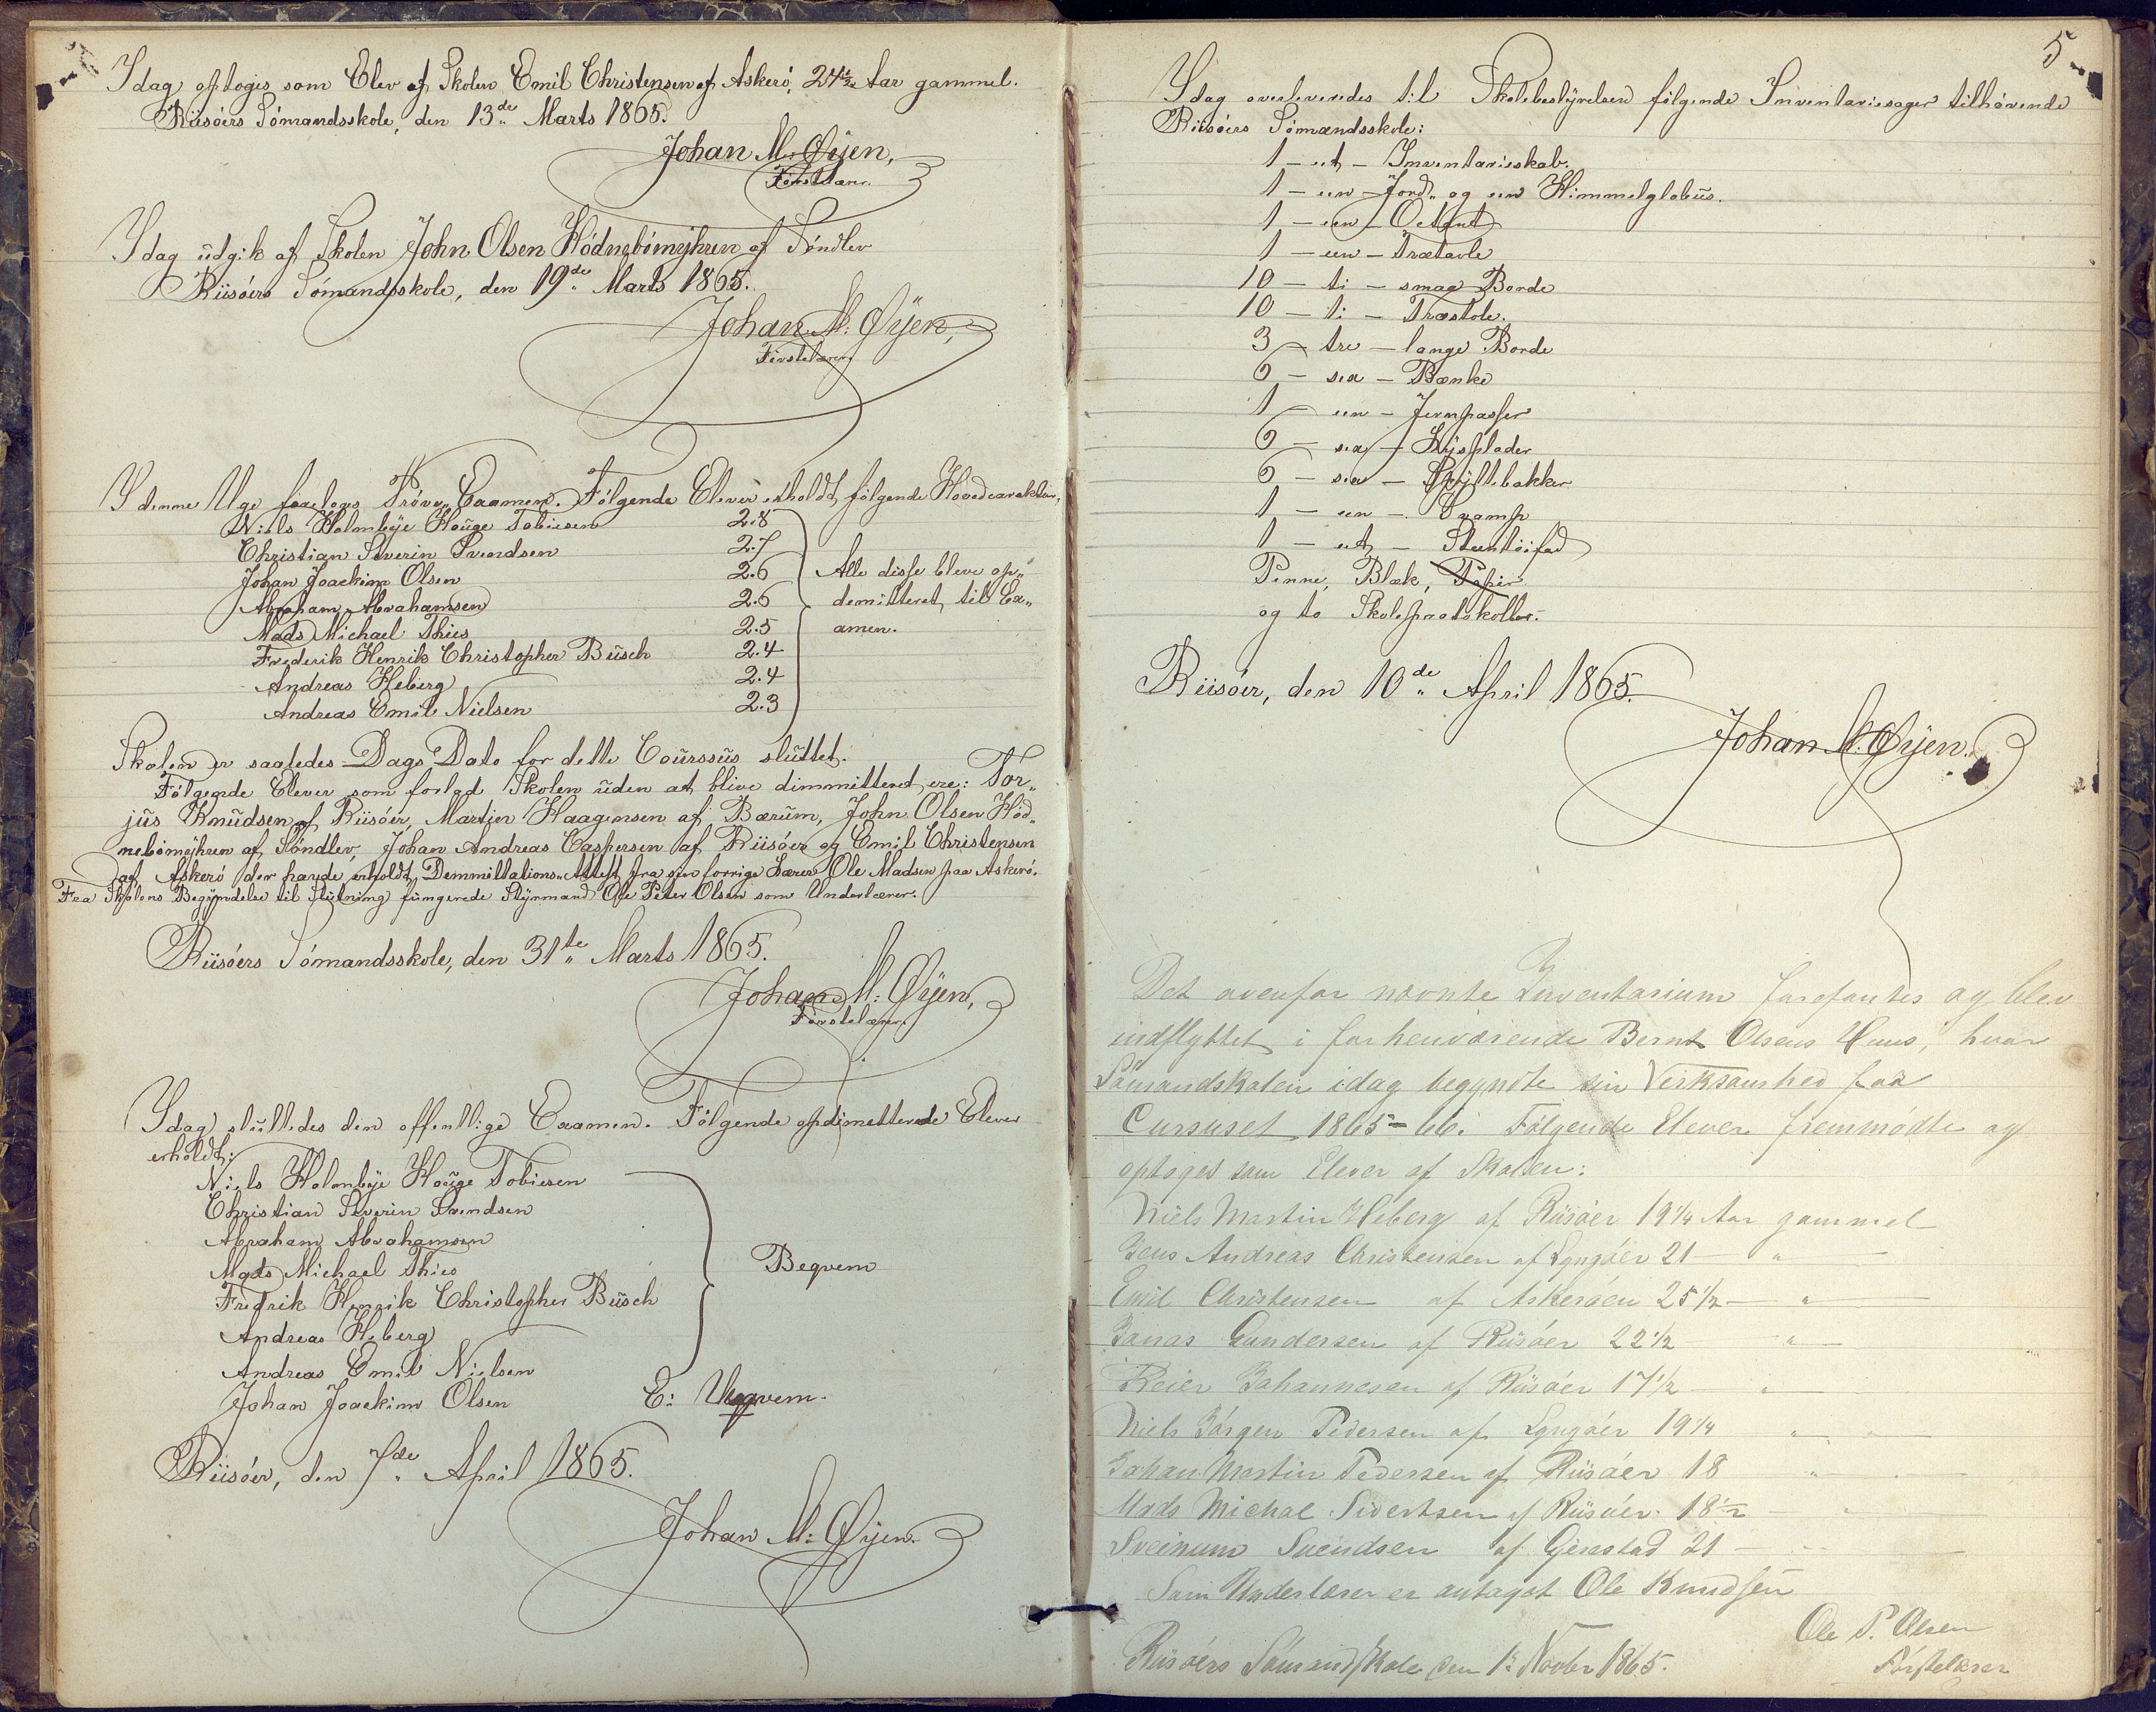 Idag optoges som Elev af Skolen Emil Christensen af Askerö, 24½ Aar gammel.
Riisöers Sömandsskole, den 13de Marts 1865.
Johan M. Øÿen,
Förstelærer.
Idag üdgik af Skolen John Olsen Hödnebömÿhren af Söndlev
Riisöers Sömandsskole, den 19de Marts 1865.
Johan M: Øÿen,
Förstelærer.
I denne Uge foretoges Pröve-Examen. Følgende Elever erholdt følgende Hovedcarakter,
Niels Holmbÿe Houge Tobiesen 2.8
Christian Severin Svendsen 2.7
Johan Joackim Olsen 2.6 Alle disse bleve op„
Abraham Abrahamsen 2.6 demitteret til Ex„
Mads Michael Thies 2.5 amen.
Frederik Henrik Christopher Büsch 2.4
Andreas Heberg 2.4
Andreas Emil Nielsen 2.3
Skolen er saaledes Dags Dato for dette Coürssüs slüttet.
Følgende Elever som forlod Skolen üden at blive dimmitteret ere: Tor„
jüs Knüdsen af Riisöer, Martin Haagensen af Bærüm, John Olsen Höd„
nebömöjhren af Söndlev, Johan Andreas Caspersen af Riisöer og Emil Christensen
af Askerö der havde erholdt Demmittations-Attest fra sin forrige Lærer Ole Madsen paa Askerö.
Fra Skolens Begÿndelse til Slütning füngerede Stÿrmand Ole Peter Olsen som Underlærer.
Riisöers Sömandsskole, den 31te Marts 1865.
Johan M: Øÿen,
Förstelærer.
Idag slüttedes den offentlige Examen. Følgende opdimetterede Elever
erholdt:
Niels Holmbÿe Houge Tobiesen
Christian Severin Svendsen
Abraham Abrahamsen
Mads Michael Thies Beqvem
Fredrik Henrik Christopher Büsch
Andreas Heberg
Andreas Emil Nielsen
Johan Joackim Olsen E: Ubeqvem.
Riisöer, den 7de April 1865.
Johan M: Øÿen.
5
Idag overleveredes til Skolebestÿrelsen følgende Inventariesager tilhörende
Riisöers Sömandsskole:
1 – et – Inventarieskab.
1 – een – Jord- og een Himmelglobüs.
1 – een – Octant
1 – een – Trætavle
10 – ti – smaa Borde
10 – ti – Træstole.
3 – tre – lange Borde
6 – sex – Bænke
1 – een – Jernpasser
6 – sex – Lÿsplader
6 – sex – Spÿttebakker
1 – een – Svamp
1 – et – Steentöifad
Penne, Blæk, Papir
og to Skoleprotokoller.
Riisöer, den 10de April 1865.
Johan M. Øÿen.
Det ovenfor nævnte Inventarium forefantes og blev
indflyttet i forhenværende Bernt Olsens Huus, hvor
Sömandskolen idag begyndte sin Verksamhed for
Cursuset 1865–66. Følgende Elever fremmödte og
optoges som Elever af Skolen:
Niels Martin Heberg af Riisöer 19¼ Aar gammel
Jens Andreas Christensen af Lyngöer 21 – „ –
Emil Christensen af Askeröen 25½ – „ –
Jonas Gundersen af Riisöer 22½ – „ –
Reier Johannesen af Riisöer 17½ – „ –
Niels Jörgen Pedersen af Lyngöer 19¼ „ –
Johan Martin Pedersen af Riisöer 18 „ –
Mads Michal Sivertsen af Riisöer 18½ – „
Sveinum Svendsen af Gjerestad 21 – „ –
Som Underlærer er antaget Ole Knudsen
Ole P. Olsen
Riisöers Sömandsskole den 1ste Novbr 1865. Förstelærer